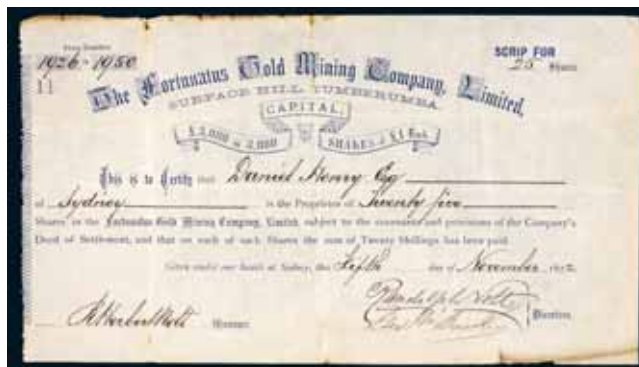 1926-1950
SCRIP FOR
25 Shares
11
The Fortunatus Gold Mining Company, Limited,
SURFACE HILL, TUMBERUMBA.
CAPITAL,
£3,000 in 3,000 SHARES of £1 Each.
This is to Certify that Daniel Henry Esq
of Sydney is the Proprietor of Twenty five
Shares in the Fortunatus Gold Mining Company, Limited, subject to the covenants and provisions of the Company's
Deed of Settlement, and that on each of such Shares the sum of Twenty Shillings has been paid.
Given under our hands at Sydney, this Fifth day of November 1872
Manager.
Directors.